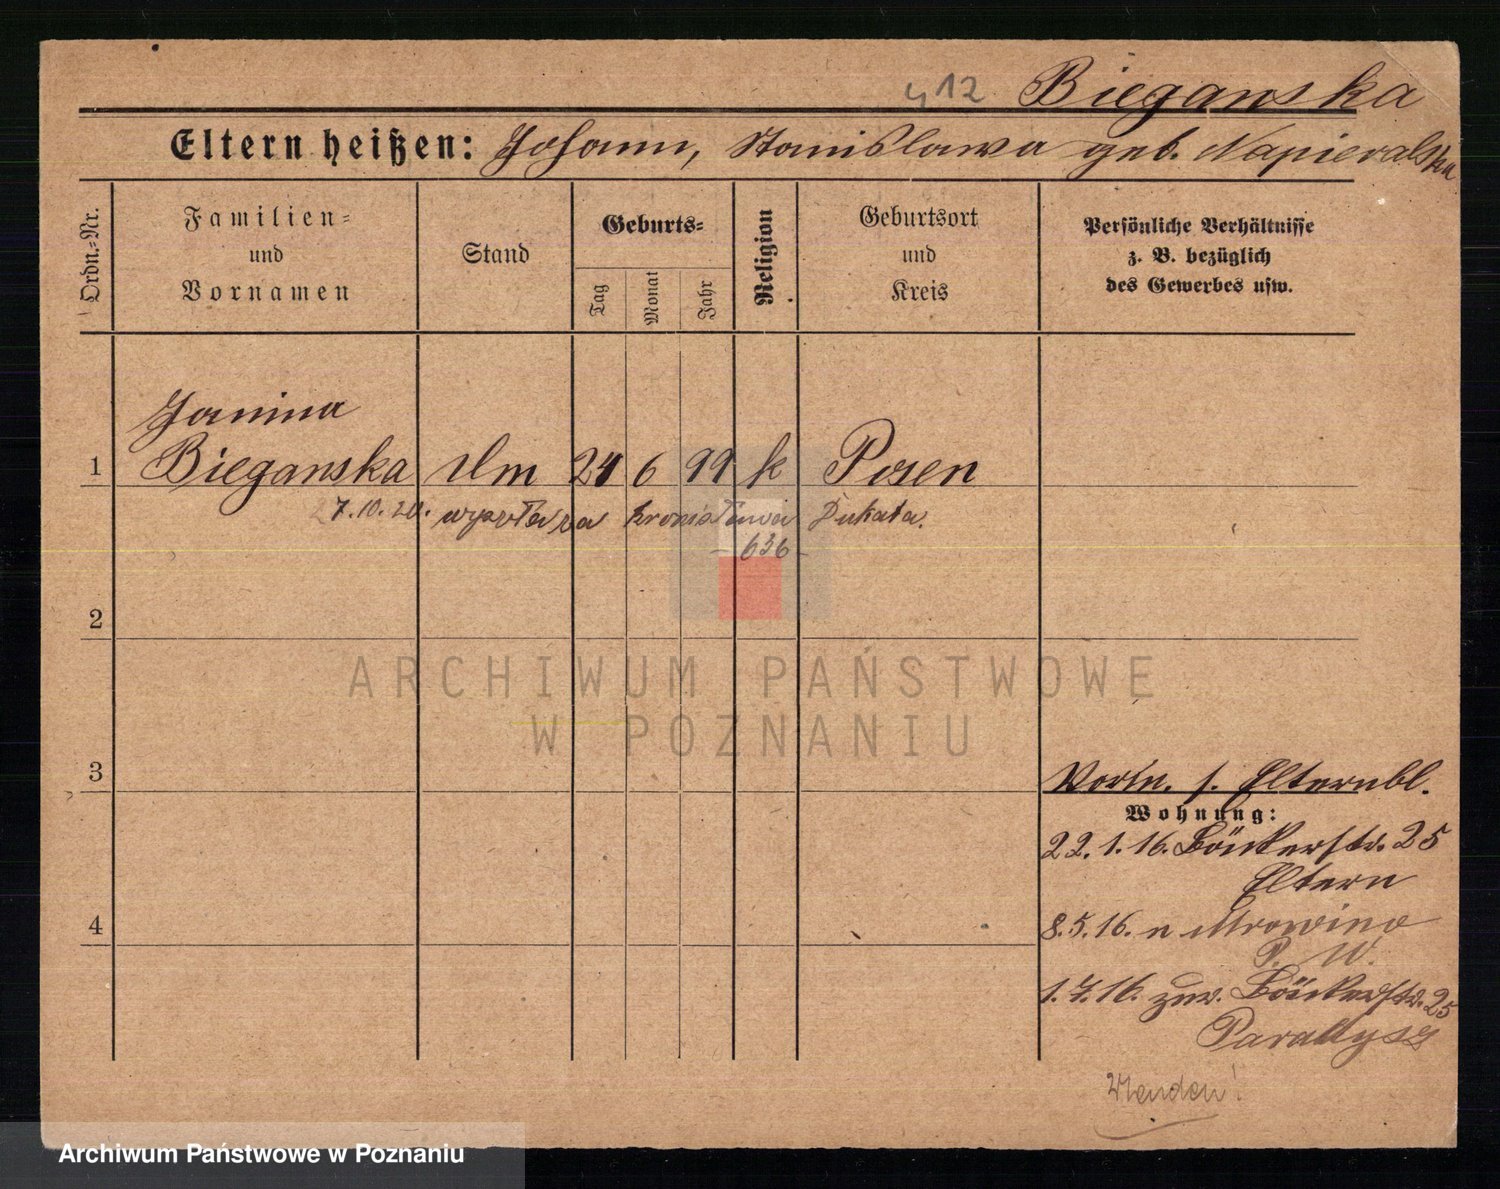 412 Bieganska
Eltern heißen: Johann, Stanislawa geb. Napieralska
Ordn.=Nr.
Familien=
und
Vornamen
Stand
Geburts=
Tag
Monat
Jahr
Religion
Geburtsort
und
Kreis
Persönliche Verhältnisse
z. B. bezüglich
des Gewerbes usw.
Janina
1 Bieganska 24 6 99 k Posen
7.10.20. Dukata.
– 636 –
2
ARCHIWUM PAŃSTWOWE
W POZNANIU
3
Vorm. s. Elternbl.
Wohnung:
22.1.16. Bäckerstr. 25
Eltern
4
8.5.16. n Mrowino
P. W.
1.7.16. zur. Bäckerstr. 25
Wenden!
Archiwum Państwowe w Poznaniu